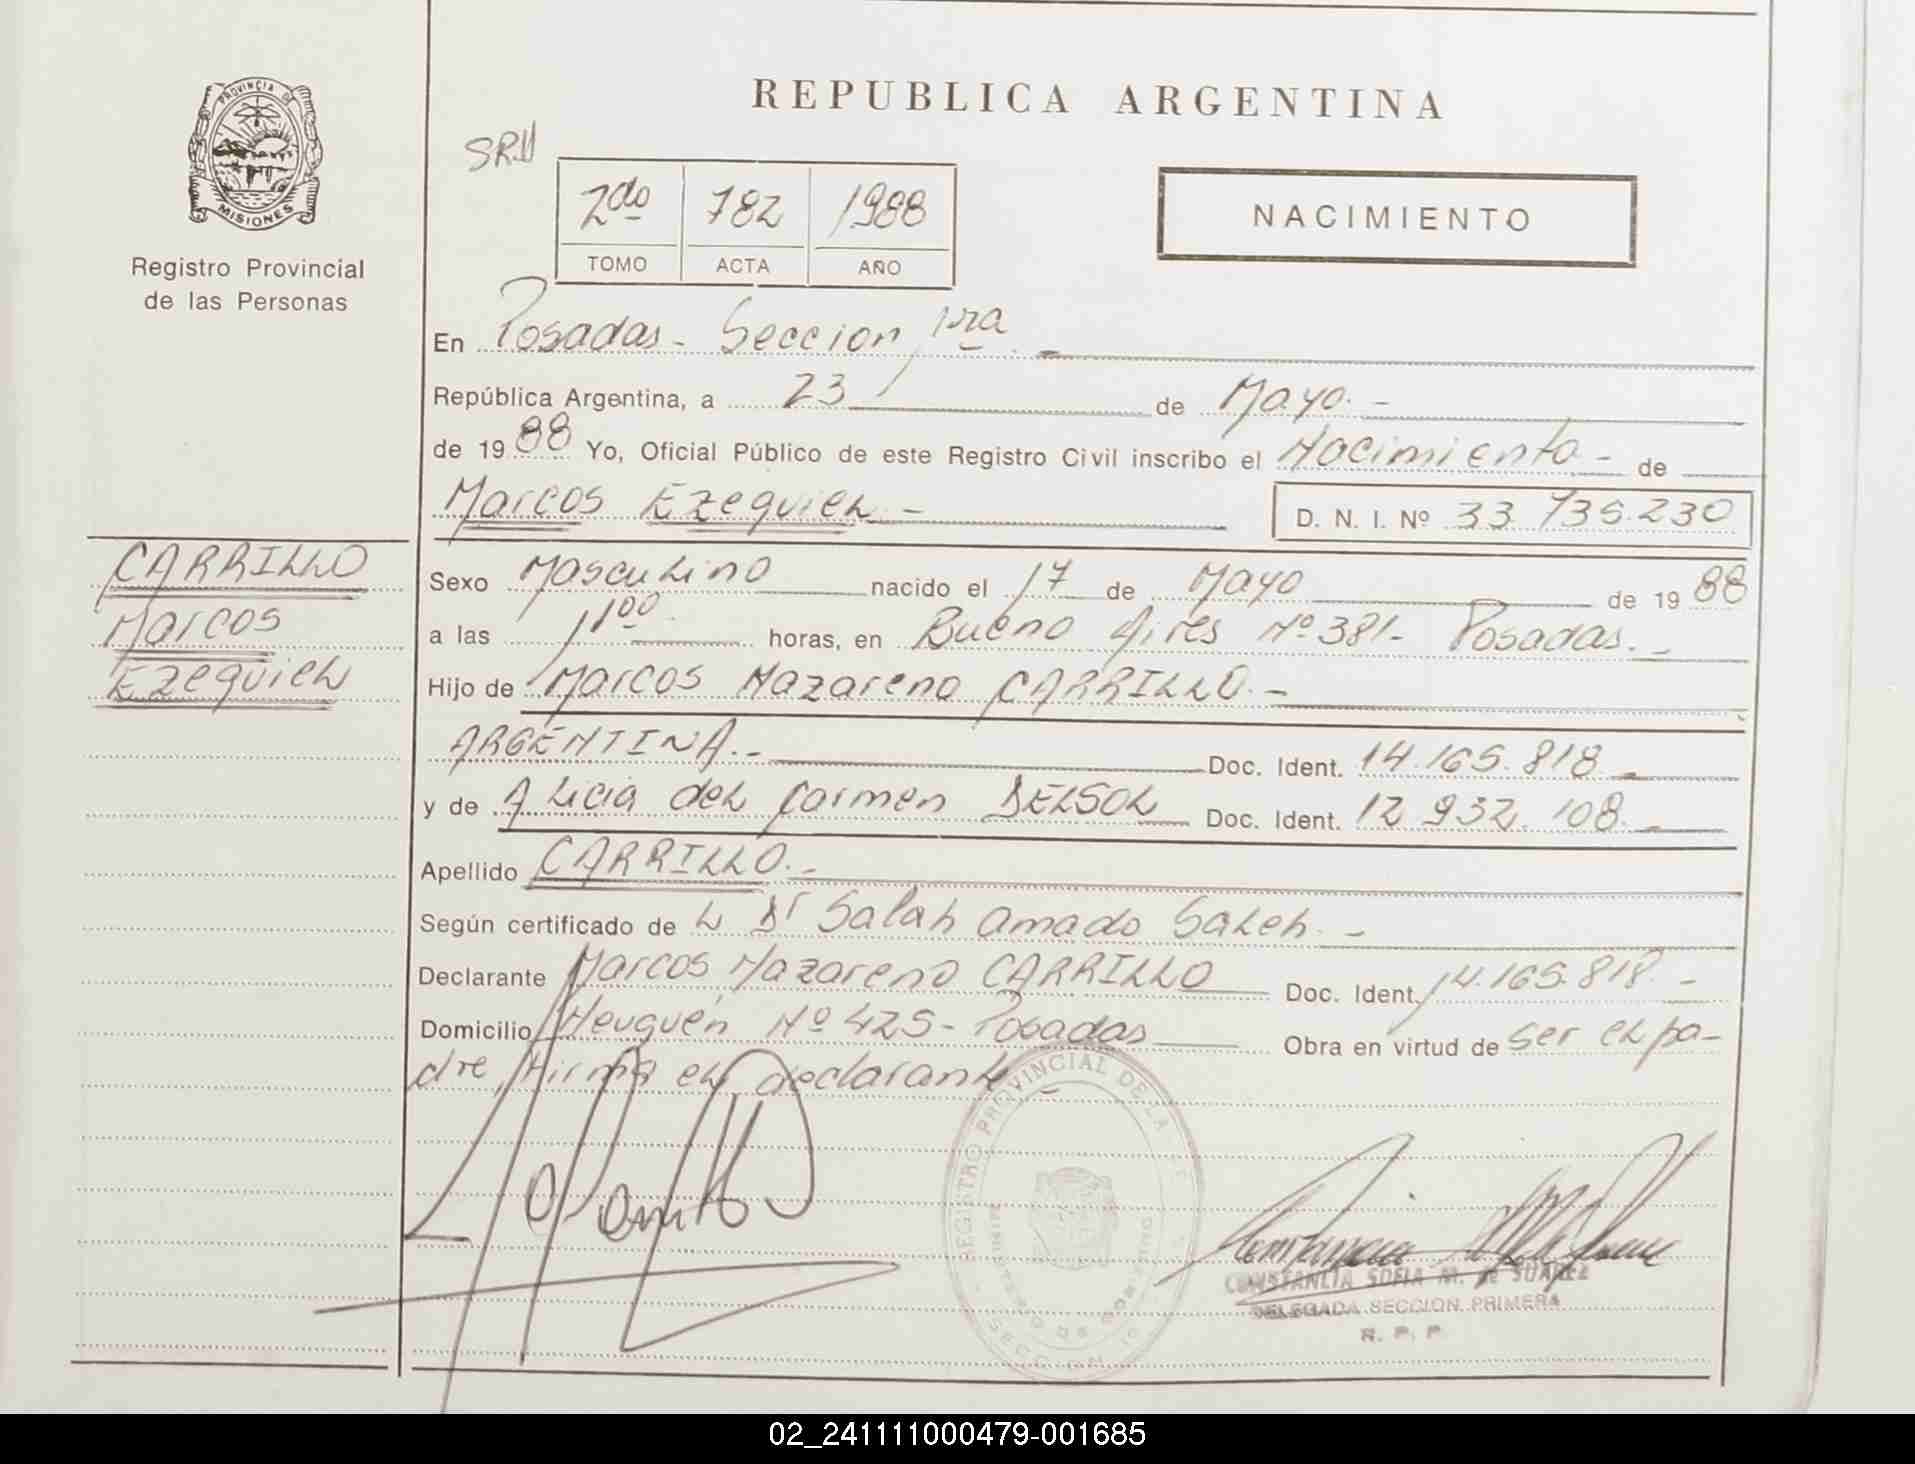 REPUBLICA ARGENTINA
PROVINCIA DE
MISIONES
Registro Provincial
de las Personas
2do 782 1988
TOMO ACTA AÑO
NACIMIENTO
En Posadas - Seccion 1ra. -
República Argentina, a 23 de Mayo. -
de 1988 Yo, Oficial Público de este Registro Civil inscribo el Nacimiento - de
Marcos Ezequiel. - D. N. I. Nº 33.735.230
CARRILLO
Marcos
Ezequiel
Sexo Masculino nacido el 17 de Mayo de 1988
a las 11 00 horas, en Bueno Aires Nº 381 - Posadas. -
Hijo de Marcos Nazareno CARRILLO. -
ARGENTINA. - Doc. Ident. 14.165.818 -
y de Alicia del Carmen DELSOL Doc. Ident. 12.932.108. -
Apellido CARRILLO. -
Según certificado de L Dr Salah Amado Saleh. -
Declarante Marcos Nazareno CARRILLO Doc. Ident. 14.165.818. -
Domicilio Neuquén Nº 425 - Posadas Obra en virtud de ser el pa-
dre, Firma el declarante -
REGISTRO PROVINCIAL DE LA
CONSTANCIA SOFIA M. de SUAREZ
DELEGADA SECCION PRIMERA
R. P. P.
02_241111000479-001685